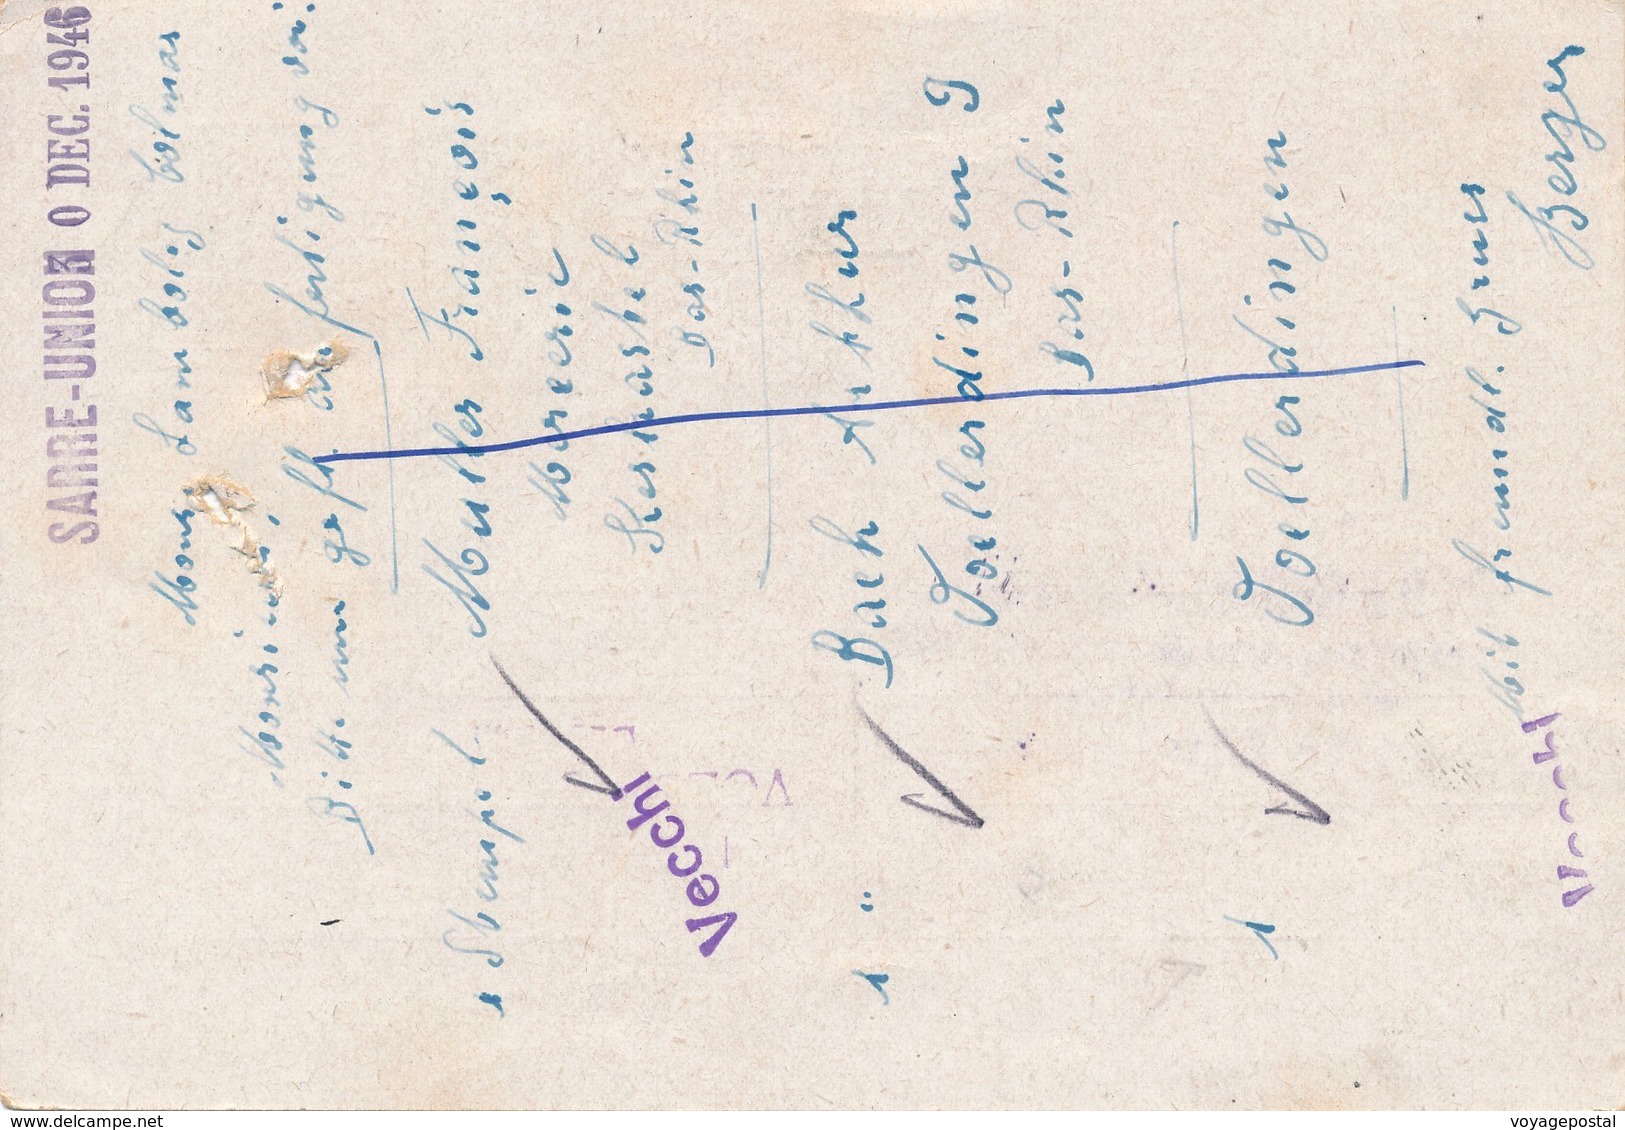 SARRE-UNION 0 DEC. 1946
Mons. Lambolig Colmar
Monsieur,
Bitte um gefl. an fertigung von:
1 Stempel Muller François
Mercerie
Keskastel
Bas-Rhin
1 " Bach Arthur
Voellerdingen
Bas-Rhin
1 Voellerdingen
Mit freundl. Grus
Berger
Vecchi
www.delcampe.net
voyagepostal